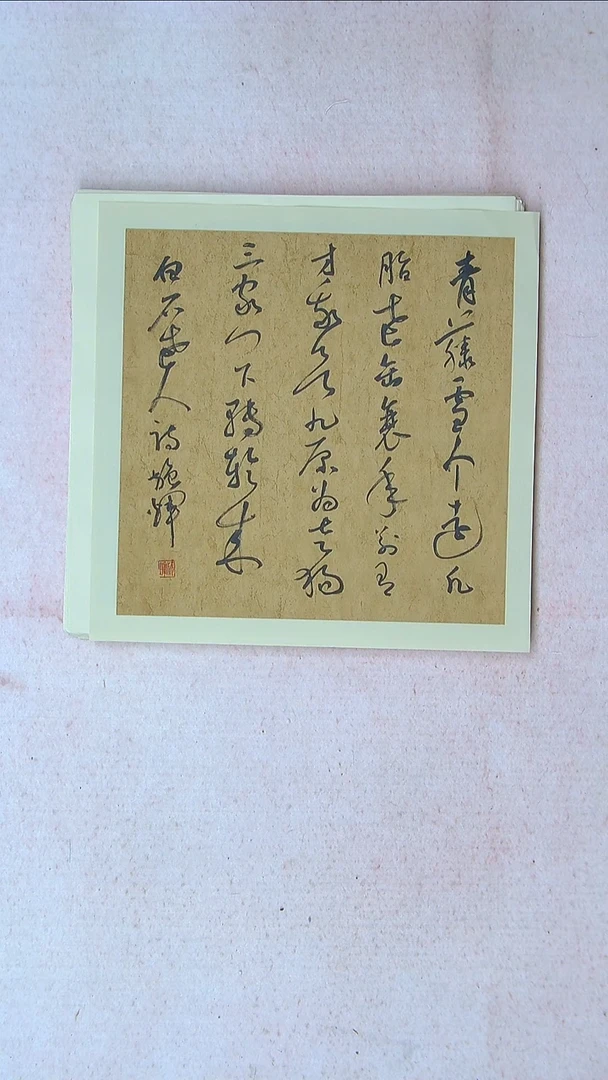 青藤雪个遠凡
胎老缶衰年别有
才我欲九原为走狗
三家门下轉輪来
白石老人诗